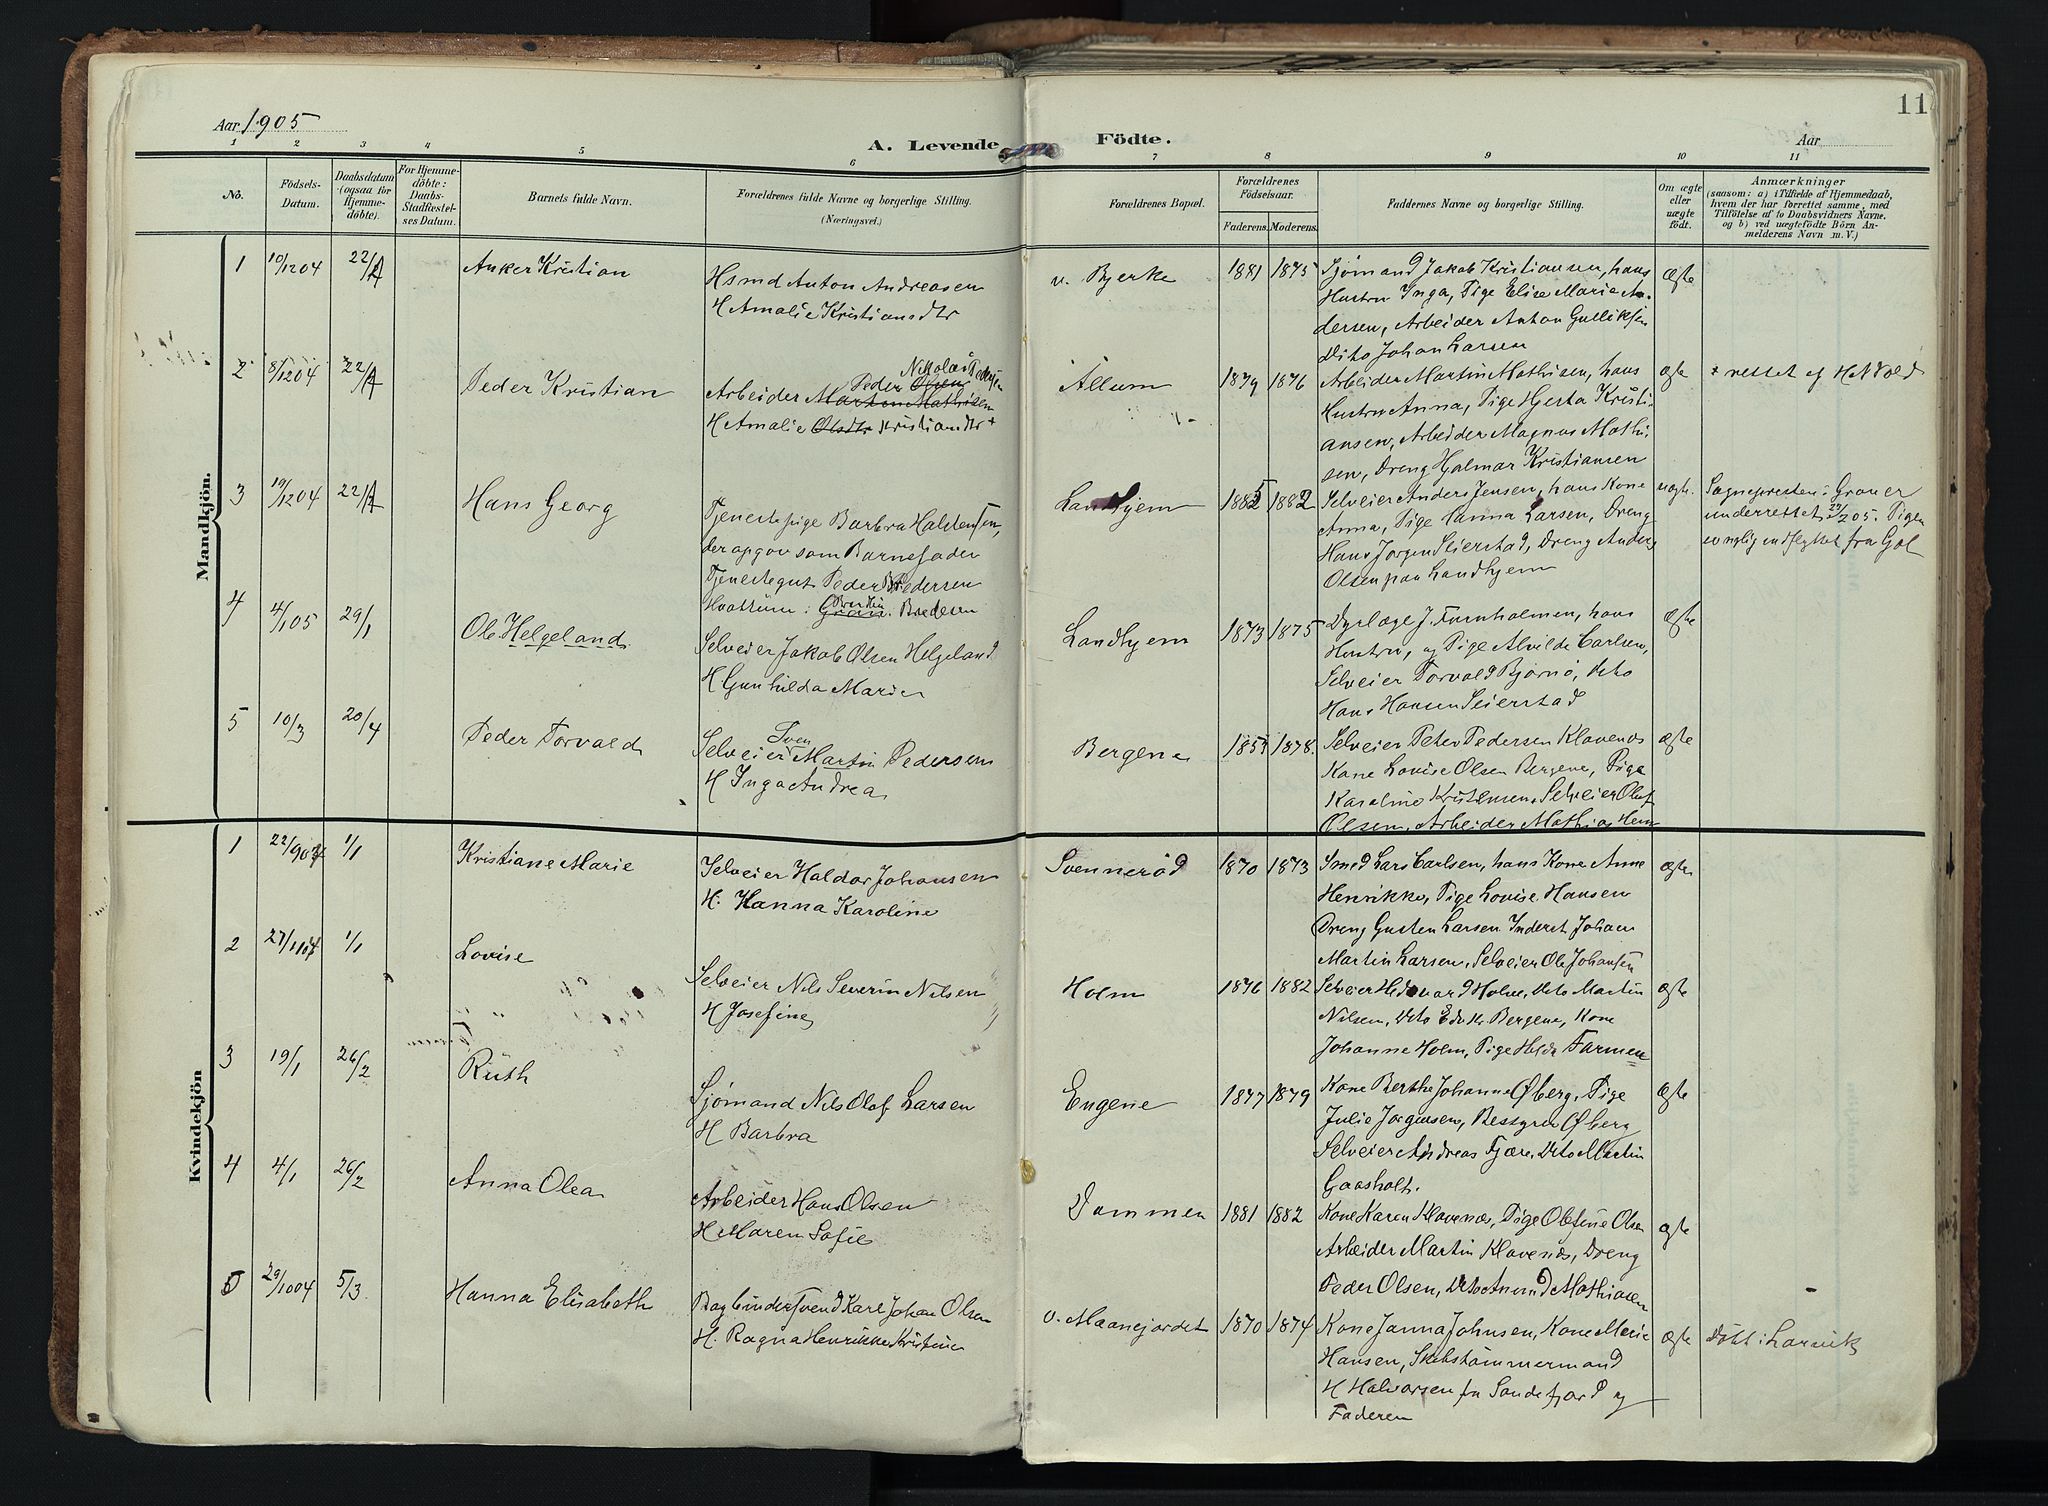 11
Aar 1905
A. Levende Födte.
Aar
1 2 3 4 5 6 7 8 9 10 11
No.
Födsels-
Datum.
Daabsdatum
(ogsaa for
Hjemme-
döbte).
For Hjemme-
döbte:
Daabs-
Stadfæstel-
ses Datum.
Barnets fulde Navn.
Forældrenes fulde Navne og borgerlige Stilling.
(Næringsvei.)
Forældrenes Bopæl.
Forældrenes
Födselsaar.
Faderens. Moderens.
Faddernes Navne og borgerlige Stilling.
Om ægte
eller
uægte
født.
Anmærkninger
(saasom: a) i Tilfælde af Hjemmedaab,
hvem der har forrettet samme, med
Tilföielse af to Daabsvidners Navne,
og b) ved uægtefödte Börn An-
melderens Navn m. V.)
Mandkjön.
1 10/12 04 22/1 Anker Kristian
Hsmd Anton Andreasen
H Amalie Kristiansdtr
v. Bjerke 1881 1875
Sjømand Jakob Kristiansen, hans
Hustru Inga, Pige Elise Marie An-
dersen, Arbeider Anton Gulliksen
Dito Johan Larsen
ægte
2 8/12 04 22/1 Peder Kristian
Nikolai Pedersen
Peder Olsen
Arbeider Martin Mathisen
H Amalie Olsdtr Kristiandtr +
Allum 1879 1876
Arbeider Martin Mathisen, hans
Hustru Anna, Pige Hjerta Kristi-
ansen, Arbeider Magnus Mathi-
sen, Dreng Hjalmar Kristiansen
ægte
+ rettet af H N Vold
3 19/12 04 22/1 Hans Georg
Tjenestepige Barbra Halstensen,
der opgav som Barnefader
Tjenestegut Peder Pedersen
Bredesen
Landhjem 1885 1882
Selveier Anders Jensen, hans Kone
Anna, Pige Hanna Larsen, Dreng
Hans Jørgen Seierstad, Dreng Anders
Olsen paa Landhjem
uægte
Sognepresten i Graner
underrettet 29/2 05. Pigen
indflyttet fra Gol
4 4/1 05 29/1 Ole Helgeland
Selveier Jakob Olsen Helgeland
H Gunhilda Marie
Landhjem 1873 1875
Dyrlæge J. Furuholmen, hans
Hustru, og Pige Alvilde Carlsen,
Selveier Torvald Bjørnø, Dito
Hans Hansen Seierstad
Ægte
5 10/3 20/4 Peder Torvald
Sven
Selveier Martin Pedersen
H Inga Andrea
Bergene 1853 1878.
Selveier Peter Pedersen Klavenæs
Kone Lovise Olsen Bergene, Pige
Karoline Kristensen, Selveier Olaf
Olsen, Arbeider Mathias Hem
ægte
Kvindekjön
1 22/9 04 1/1 Kristiane Marie
Selveier Haldor Johansen
H. Hanna Karoline
Svennerød 1870 1873
Smed Lars Carlsen, hans Kone Anne
Henrikke, Pige Lovise Hansen
Dreng Gusten Larsen Inderst Johan
Martin Larsen, Selveier Ole Johansen
ægte
2 27/11 04 1/1 Lovise
Selveier Nils Severin Nilsen
H Josefine
Holm 1876 1882
Selveier Hedevard Holm, Dito Martin
Nilsen, Dito Edv. Kr. Bergene, Kone
Johanne Holm, Pige Helda Farmen
Ægte
3 19/1 26/2 Ruth
Sjømand Nils Olaf Larsen
H Barbra
Eugene 1877 1879
Kone Berthe Johanne Øberg, Pige
Julie Jørgensen, Bestyrer Øberg
Selveier Andreas Fjære, Dito Martin
Gaasholt.
Ægte
4 4/1 26/2 Anna Olea
Arbeider Hans Olsen
H Maren Sofie
Dammen 1881 1882
Kone Karen Klavenæs, Pige Olefine Olsen
Arbeider Martin Klavenæs, Dreng
Peder Olsen, Dito Amund Mathiasen
ægte
5 29/10 04 5/3 Hanna Elisabeth
Bogbinder Svend Karl Johan Olsen
H. Ragna Henrikke Kristine
v. Maanejordet 1870 1874
Kone Janna Johnsen, Kone Marie
Hansen, Skibstømmermand
H Halvorsen fra Sandefjord og
Faderen
ægte
Døbt i Larvik